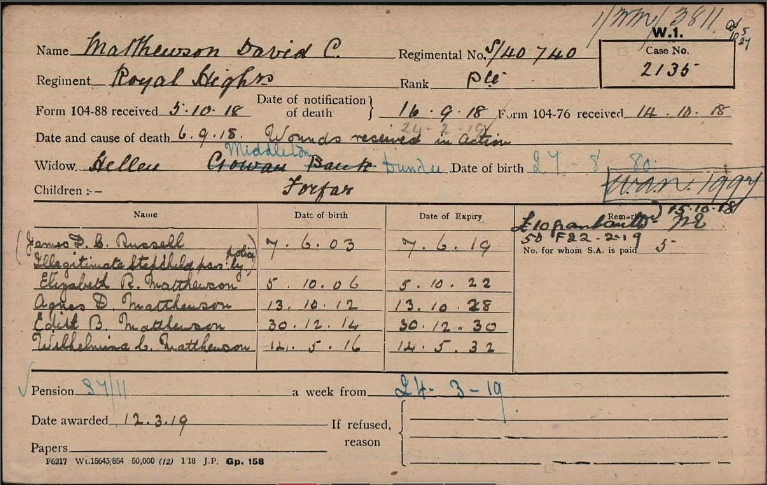 1/MM/3811
W.1.
Name Matthewson David C. Regimental No. S/40740 Case No. 2135
Regiment Royal Highrs Rank Pte
Form 104-88 received 5.10.18 Date of notification of death } 16.9.18 Form 104-76 received 14.10.18
24-2-19
Date and cause of death 6.9.18. Wounds received in action
Middleton
Widow Hellen Gowan Bank Dundee Date of birth 27-8-80.
Children :— Forfar
15.10.18
Name Date of birth Date of Expiry Remarks
£10 grant auth
50 F22-2-19
No. for whom S.A. is paid 5
(James D. C. Russell 7.6.03 7.6.19
Illegitimate Stepchild by)
Elizabeth R. Matthewson 5.10.06 5.10.22
Agnes D. Matthewson 13.10.12 13.10.28
Edith B. Matthewson 30.12.14 30.12.30
Wilhelmina C. Matthewson 14.5.16 14.5.32
Pension 37/11 a week from 24-3-19
Date awarded 12.3.19 If refused, reason
Papers
F6217 Wt.15643/854 50,000 (12) 1/18 J.P. Gp. 158